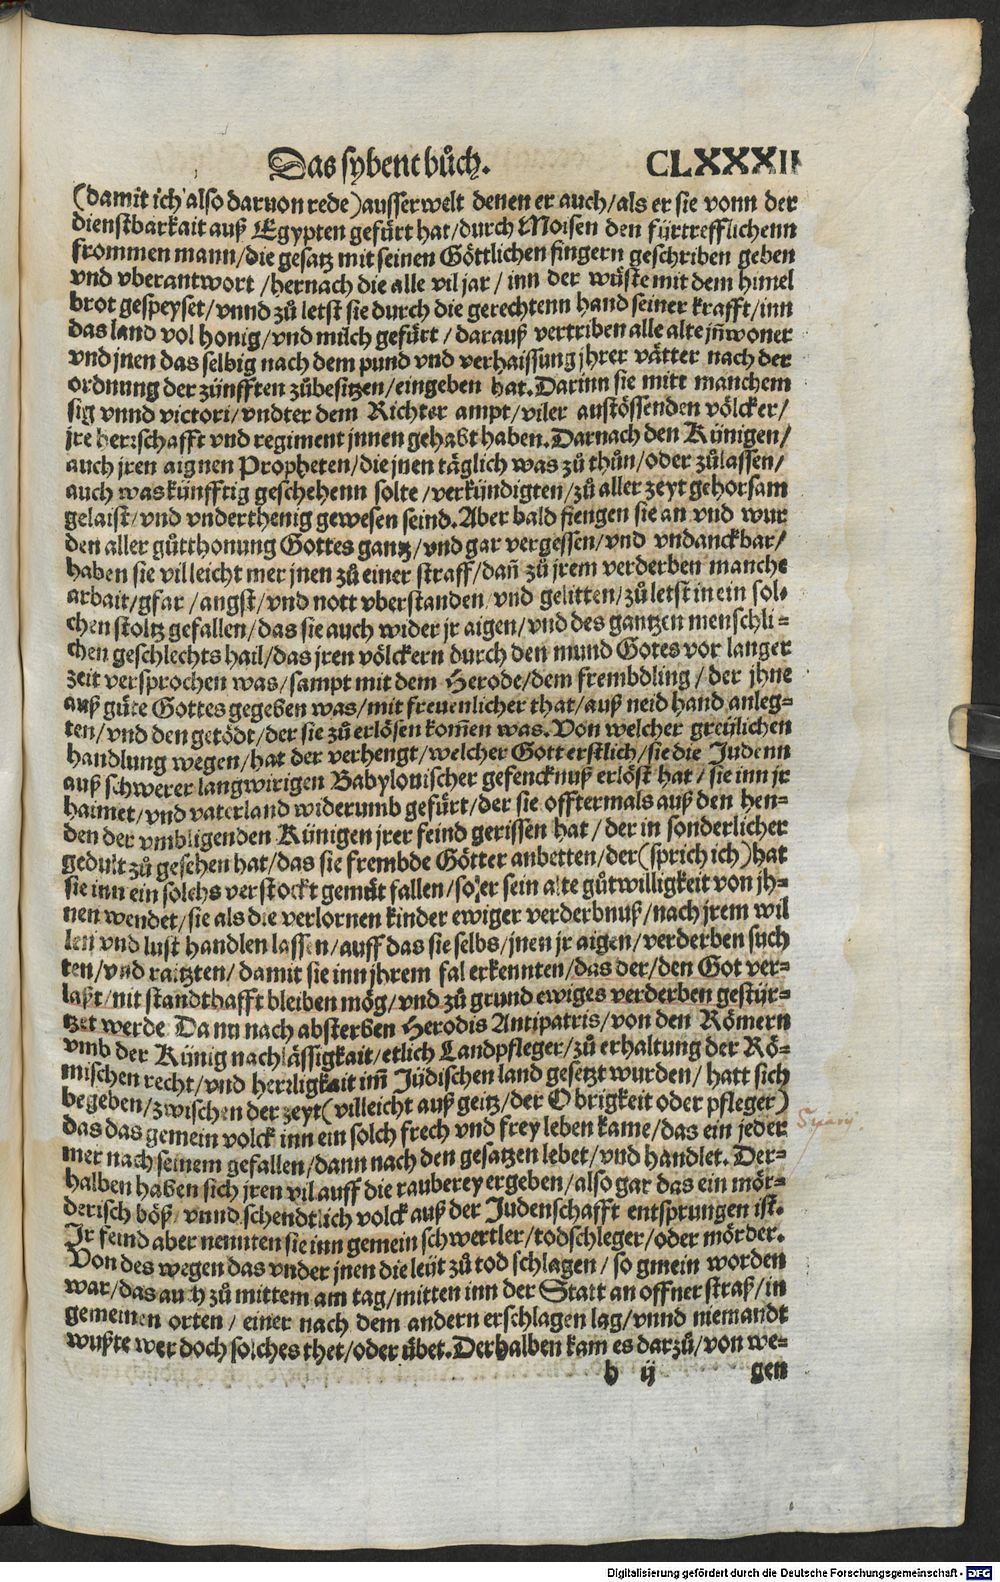 Das sybent bůch. CLXXXII
(damit ich also daruon rede) ausserwelt denen er auch / als er sie vonn der
dienstbarkait auß Egypten gefürt hat / durch Moisen den fürtrefflichenn
frommen mann / die gesatz mit seinen Göttlichen fingern geschriben geben
vnd vberantwort / hernach die alle vil jar / inn der wüste mit dem himel
brot gespeyset / vnnd zů letst sie durch die gerechtenn hand seiner krafft / inn
das land vol honig / vnd milch gefürt / darauß vertriben alle alte jñwoner
vnd jnen das selbig nach dem pund vnd verhaissung jhrer vätter nach der
ordnung der zünfften zůbesitzen / eingeben hat. Darinn sie mitt manchem
sig vnnd victori / vndter dem Richter ampt / viler anstössenden völcker /
jre herrschafft vnd regiment jnnen gehabt haben. Darnach den Künigen /
auch jren aignen Propheten / die jnen täglich was zů thůn / oder zůlassen /
auch was künfftig geschehenn solte / verkündigten / zů aller zeyt gehorsam
gelaist / vnd vnderthenig gewesen seind. Aber bald fiengen sie an vnd wur
den aller gůtthonung Gottes gantz / vnd gar vergessen / vnd vndanckbar /
haben sie villeicht mer jnen zů einer straff / dañ zů jrem verderben manche
arbait / gfar / angst / vnd nott vberstanden / vnd gelitten / zů letst in ein sol-
chen stoltz gefallen / das sie auch wider jr aigen / vnd des gantzen menschli-
chen geschlechts hail / das jren völckern durch den mund Gotes vor langer
zeit versprochen was / sampt mit dem Herode / dem frembdling / der jhne
auß güte Gottes gegeben was / mit freuenlicher that / auß neid hand anleg-
ten / vnd den getödt / der sie zů erlösen kom̃en was. Von welcher greylichen
handlung wegen / hat der verhengt / welcher Gott erstlich / sie die Judenn
auß schwerer langwirigen Babylonischer gefencknuß erlöst hat / sie inn jr
haimet / vnd vaterland widerumb gefürt / der sie offtermals auß den hen-
den der vmbligenden Künigen jrer feind gerissen hat / der in sonderlicher
gedult zů gesehen hat / das sie frembde Götter anbetten / der (sprich ich) hat
sie inn ein solchs verstockt gemüt fallen / so er sein alte gůtwilligkeit von jh-
nen wendet / sie als die verlornen kinder ewiger verderbnuß / nach jrem wil
len vnd lust handlen lassen / auff das sie selbs / jnen jr aigen / verderben such
ten / vnd raitzten / damit sie inn jhrem fal erkennten / das der / den Got ver-
laßt / nit standthafft bleiben mög / vnd zů grund ewiges verderben gestür-
tzet werde Dann nach absterben Herodis Antipatris / von den Römern
vmb der Künig nachlässigkait / etlich Landpfleger / zů erhaltung der Rö-
mischen recht / vnd herrligkait im̃ Jüdischen land gesetzt wurden / hatt sich
begeben / zwischen der zeyt (villeicht auß geitz / der Obrigkeit oder pfleger)
das das gemein volck inn ein solch frech vnd frey leben kame / das ein jeder
mer nach seinem gefallen / dann nach den gesatzen lebet / vnd handlet. Der-
halben haben sich jren vil auff die rauberey ergeben / also gar das ein mör-
derisch böß / vnnd schendtlich volck auß der Judenschafft entsprungen ist.
Ir feind aber nennten sie inn gemein schwertler / todschleger / oder mörder.
Von des wegen das vnder jnen die leüt zů tod schlagen / so gmein worden
war / das auch zů mittem am tag / mitten inn der Statt an offner straß / in
gemeinen orten / einer nach dem andern erschlagen lag / vnnd niemandt
wußte wer doch solches thet / oder übet. Derhalben kam es darzů / von we-
h ij gen
Digitalisierung gefördert durch die Deutsche Forschungsgemeinschaft - DFG